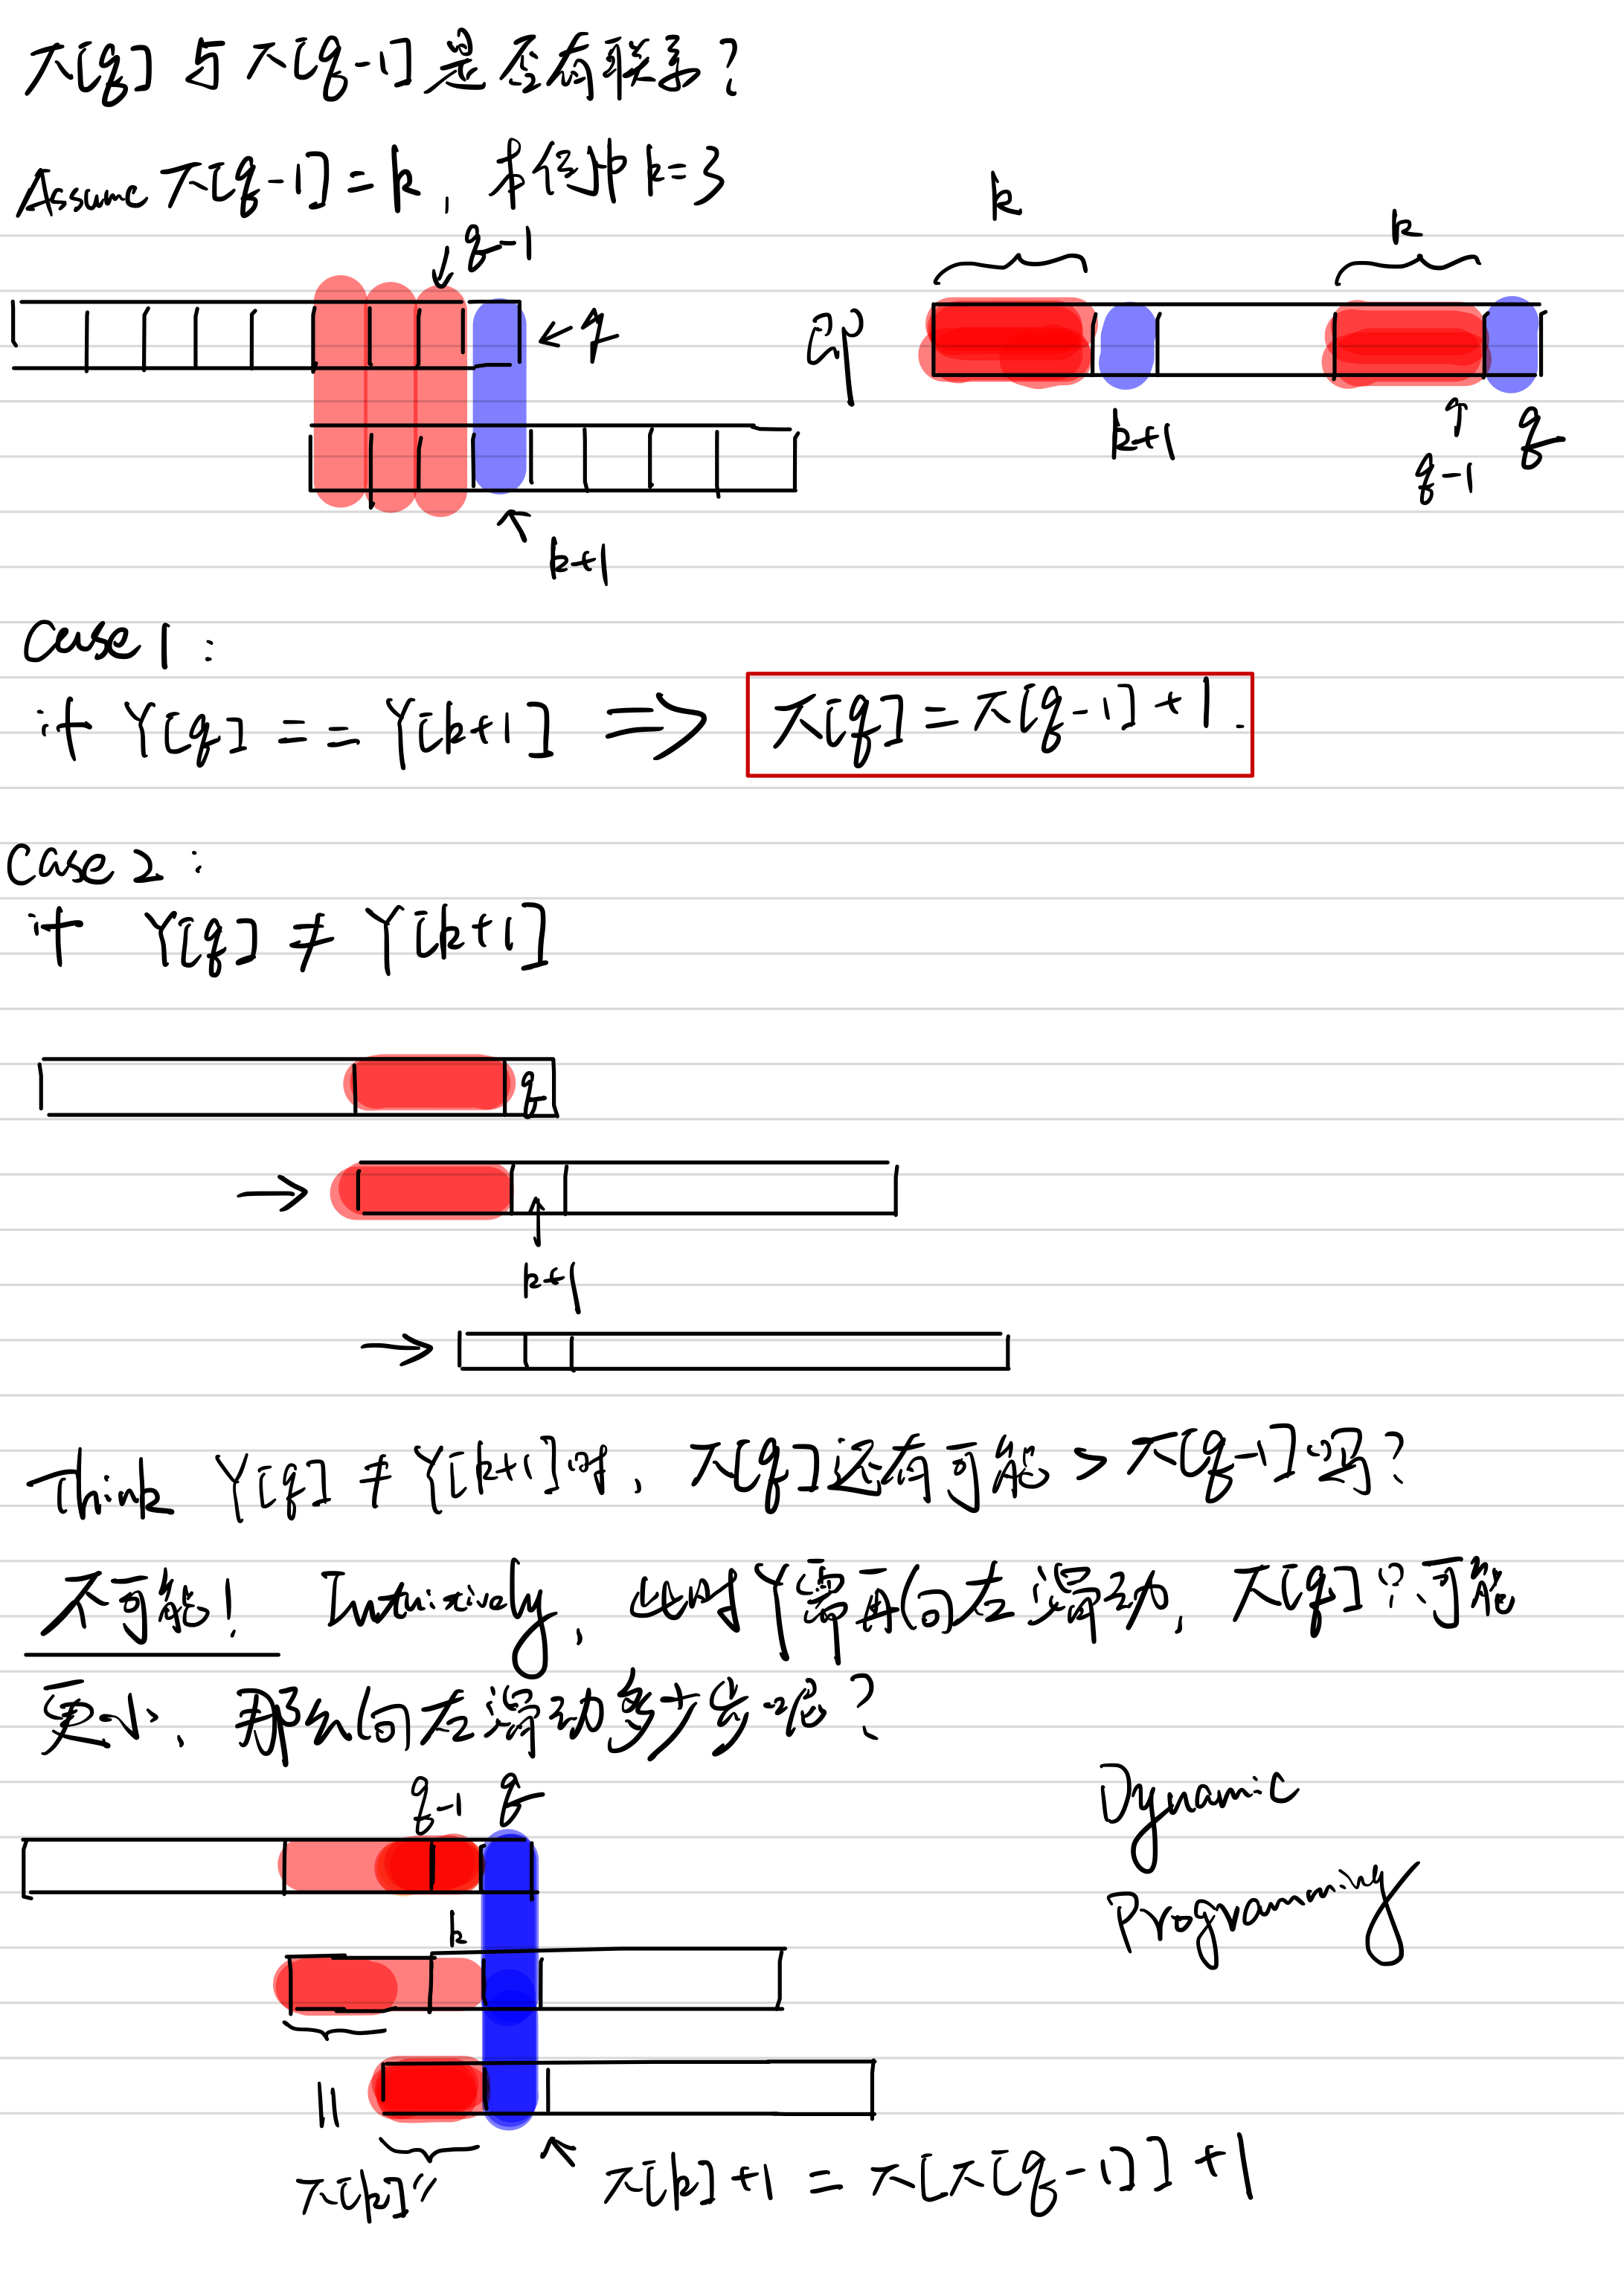 π[q] 与 π[q-1] 是否有联系?
Assume π[q-1] = k, 本例中 k=3
q-1
k
k
q
k+1
k+1
q-1
q
Case 1:
if Y[q] == Y[k+1] ⇒ π[q] = π[q-1]+1.
Case 2:
if Y[q] ≠ Y[k+1]
q
k+1
Think Y[q] ≠ Y[k+1]时, π[q]还有可能 > π[q-1]吗?
不可能! Intuitively, 此时Y需再向右滑动, π[q]只可能
更小, 那么向右滑动多少步呢?
q-1
q
k
Dynamic
Programming
=
π[k]
π[k]+1 = π[π[q-1]]+1